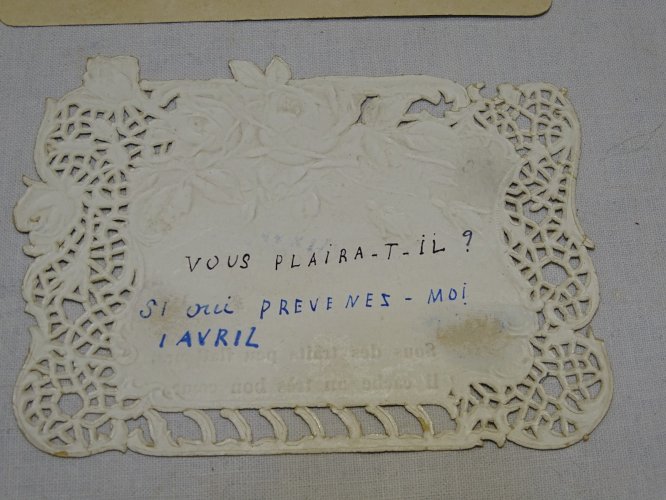 VOUS PLAIRA-T-IL ?
SI OUI PREVENEZ-MOI
1 AVRIL
Sous des traits peu
Il cache un très bon